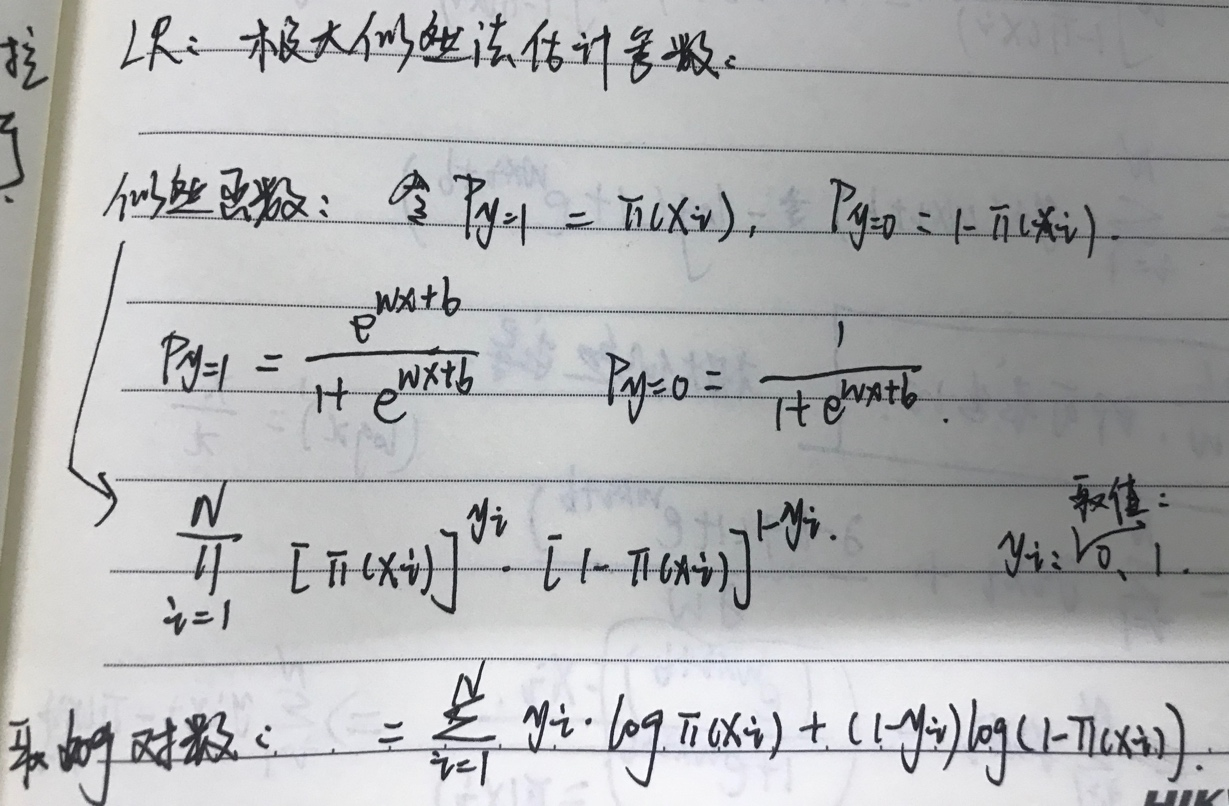 LR: 极大似然法估计参数。
似然函数: 令 P_{y=1} = π(x_i), P_{y=0} = 1-π(x_i).
P_{y=1} = \frac{e^{wx+b}}{1+e^{wx+b}} P_{y=0} = \frac{1}{1+e^{wx+b}}.
\prod_{i=1}^{N} [π(x_i)]^{y_i} · [1-π(x_i)]^{1-y_i}. y_i: 取值: 0、1.
取log对数: = \sum_{i=1}^{N} y_i·log π(x_i) + (1-y_i)log(1-π(x_i)).